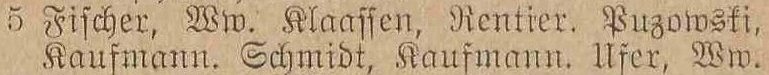 5 Fischer, Ww. Klaassen, Rentier. Puzowski,
Kaufmann. Schmidt, Kaufmann. Ufer, Ww.